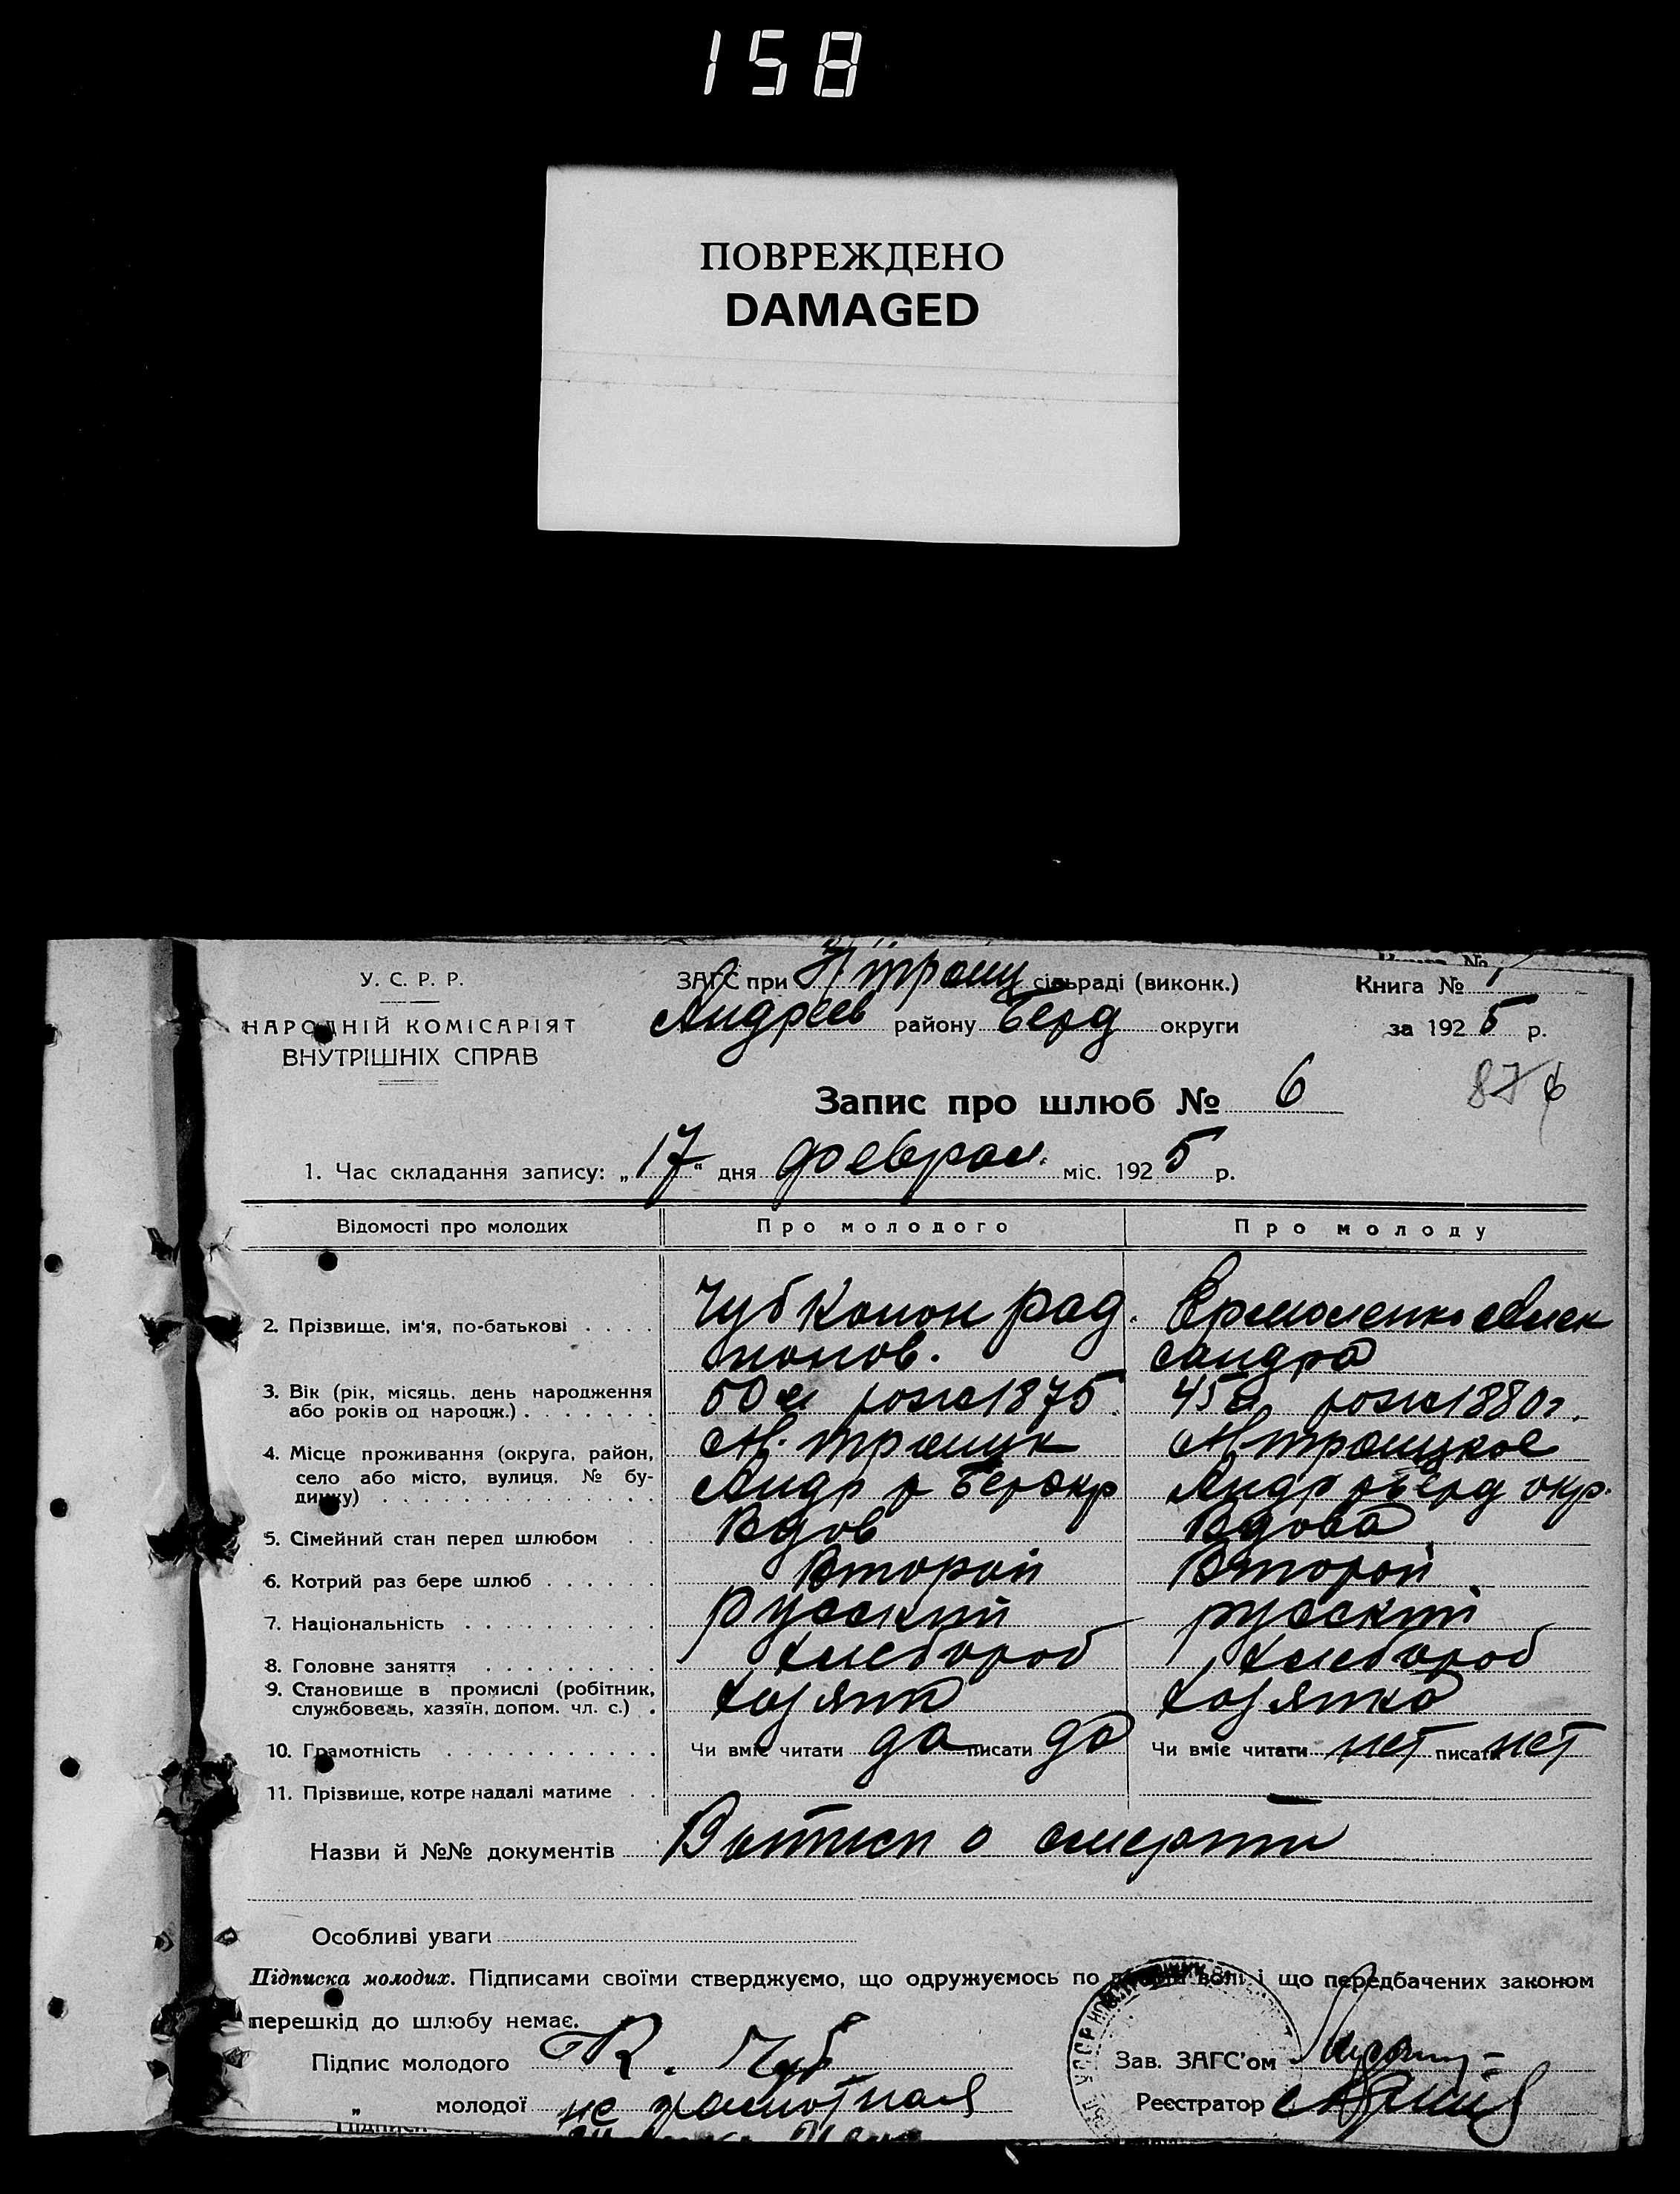 158
ПОВРЕЖДЕНО
DAMAGED
У. С. Р. Р.
НАРОДНІЙ КОМІСАРІЯТ
ВНУТРІШНІХ СПРАВ
ЗАГС при Нтроиц сільраді (виконк.)
Андреев району Берд округи
Книга № 1
за 1925 р.
Запис про шлюб № 6
87 6
1. Час складання запису: „17" дня феврал. міс. 1925 р.
Відомості про молодих Про молодого Про молоду
2. Прізвище, ім'я, по-батькові Чуб Конон рад. Ермоленко Алек
сандра
3. Вік (рік, місяць, день народження 50 л рож 1875 45 л рож 1880 г.
або років од народж.)
4. Місце проживання (округа, район, Н. троицк Н троицкое
село або місто, вулиця, № бу- Андр р Бер окр Андр р Берд окр.
динку)
5. Сімейний стан перед шлюбом Вдов Вдова
6. Котрий раз бере шлюб Второй Второй
7. Національність Русский русский
8. Головне заняття хлебороб хлебороб
9. Становище в промислі (робітник, хозяин хозяика
службовець, хазяїн, допом. чл. с.)
10. Грамотність Чи вміє читати да писати да Чи вміє читати нет писати нет
11. Прізвище, котре надалі матиме
Назви й №№ документів Выписи о смерти
Особливі уваги
Підписка молодих. Підписами своїми стверджуємо, що одружуємось по добрій волі і що передбачених законом
перешкід до шлюбу немає.
Підпис молодого К. Чуб Зав. ЗАГС'ом
„ молодої не грамотная Реєстратор